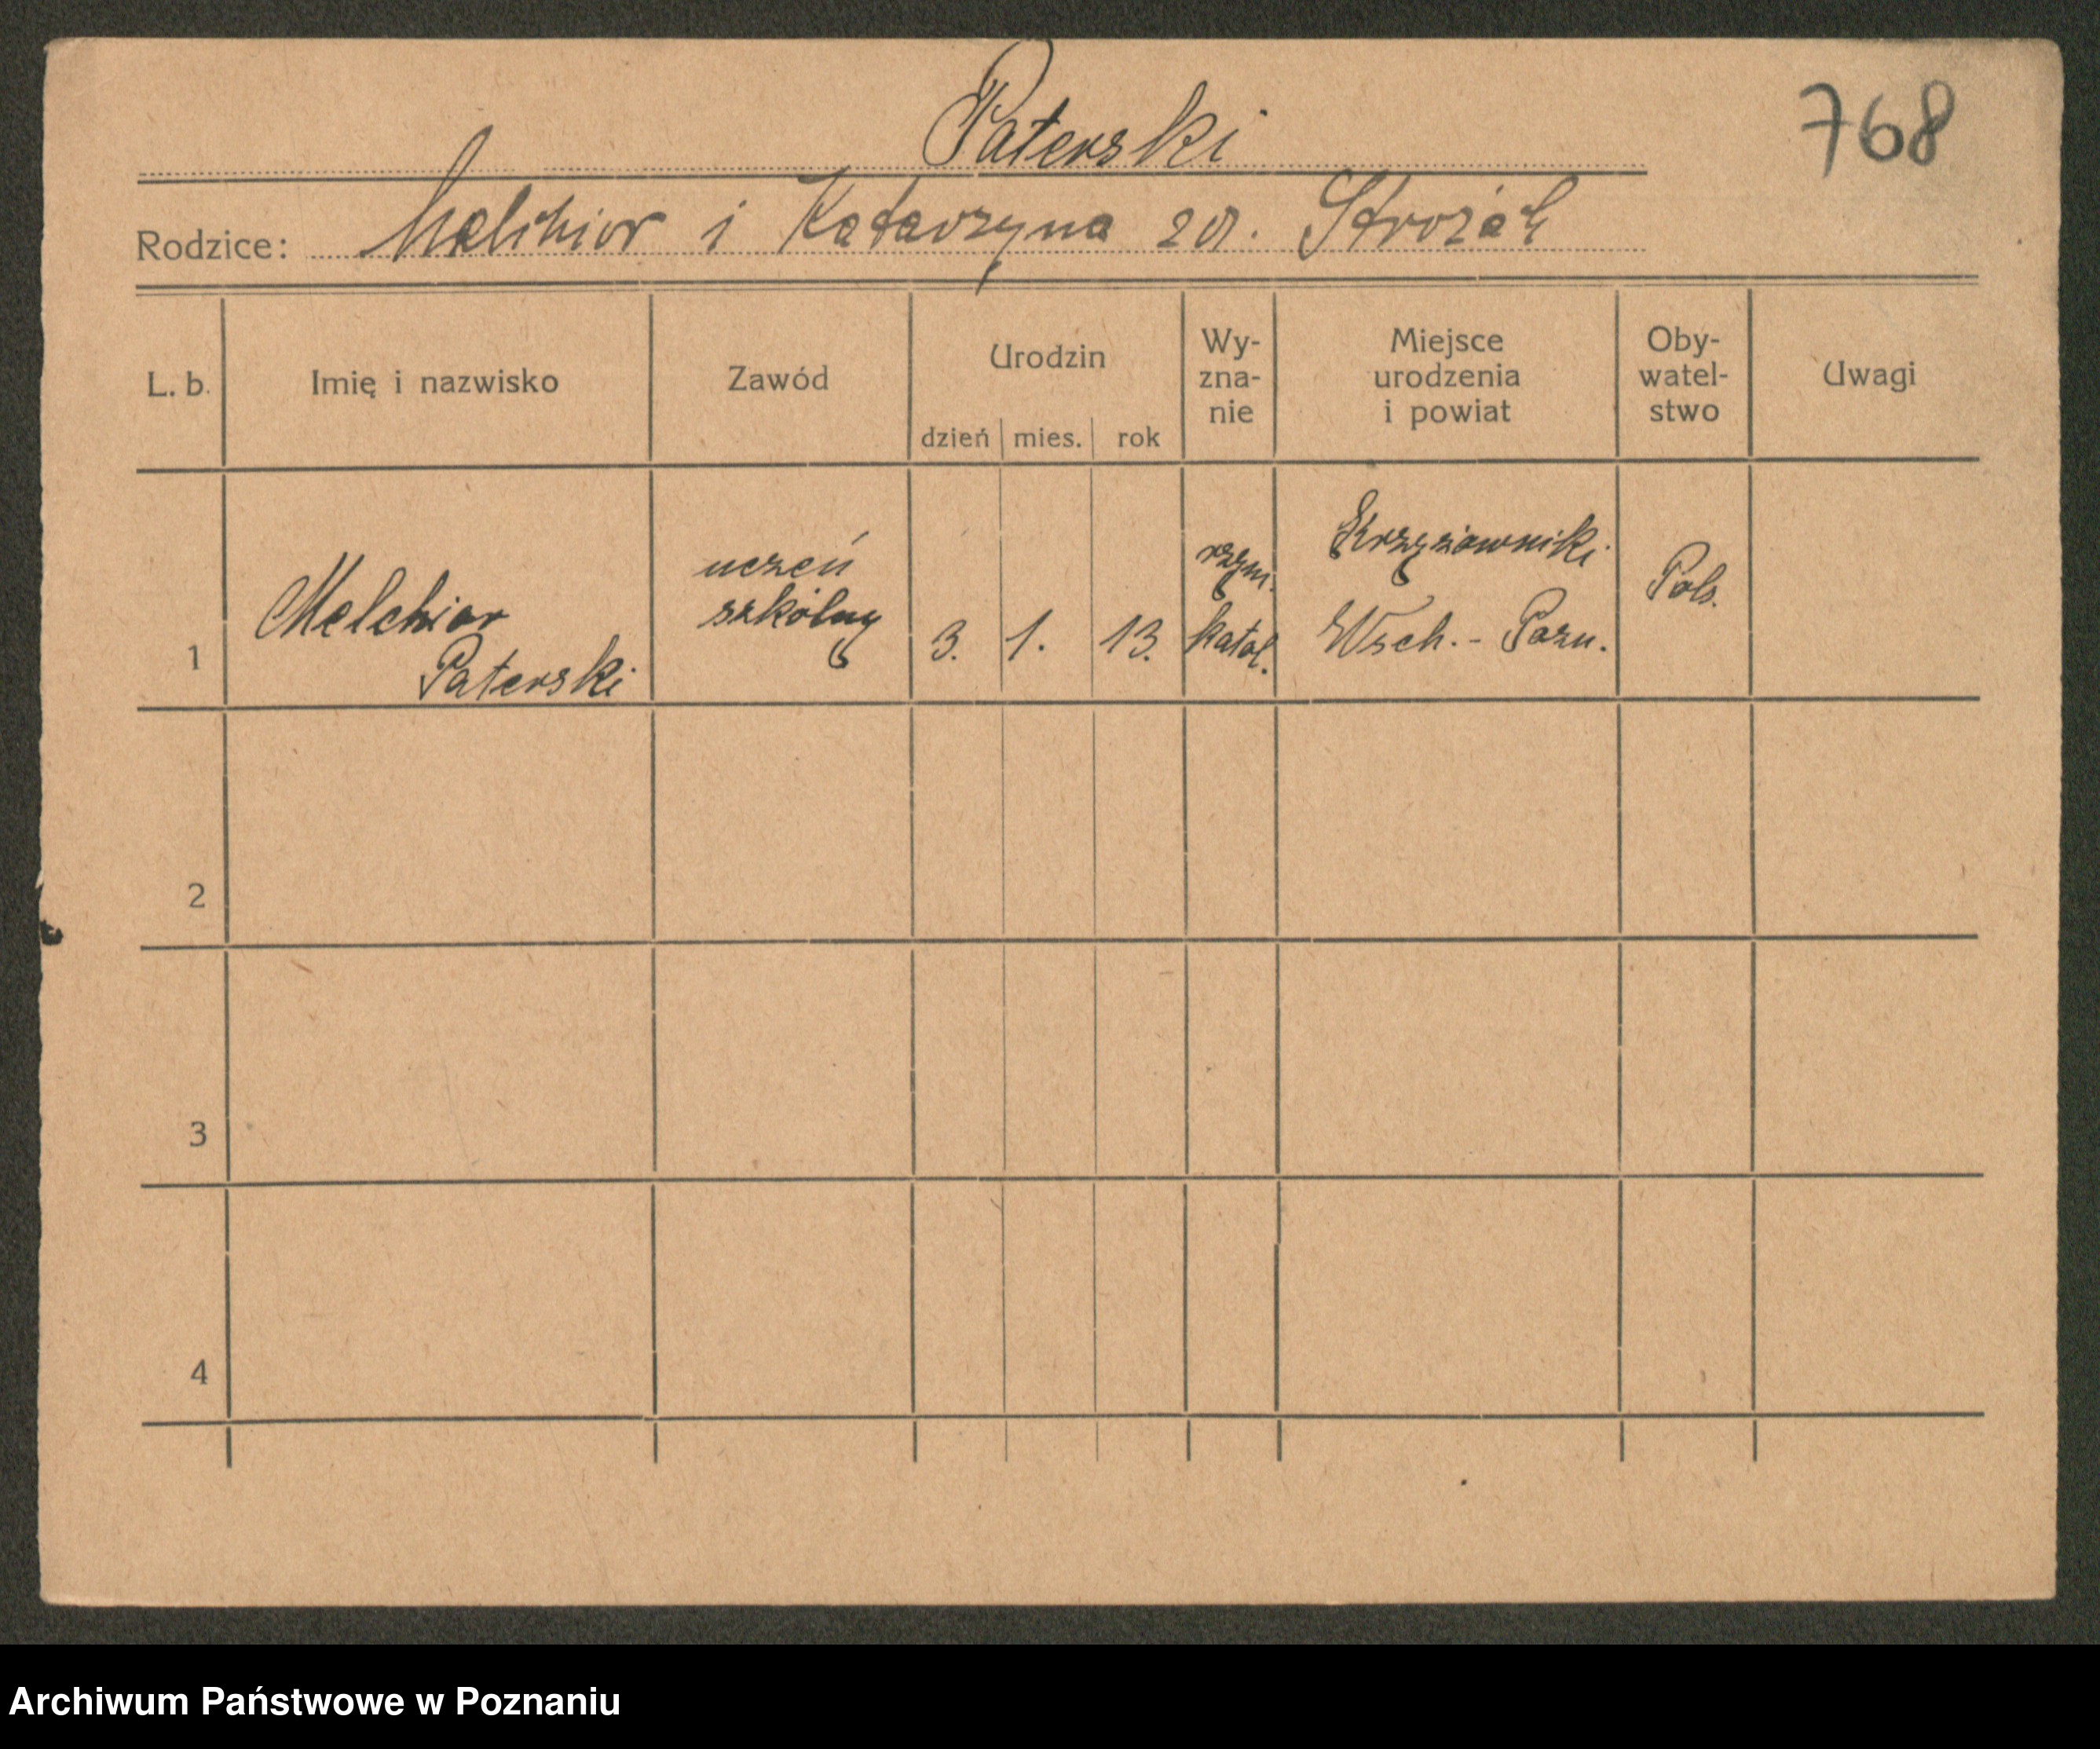 768
Paterski
Rodzice: Melchior i Katarzyna zd. Stróżak
L. b. Imię i nazwisko Zawód Urodzin dzień mies. rok Wy-zna-nie Miejsce urodzenia i powiat Oby-watel-stwo Uwagi
1 Melchior Paterski uczeń szkólny 3. 1. 13. rzym. katol. Krzyżowniki Wsch. - Pozn. Pols.
2
3
4
Archiwum Państwowe w Poznaniu